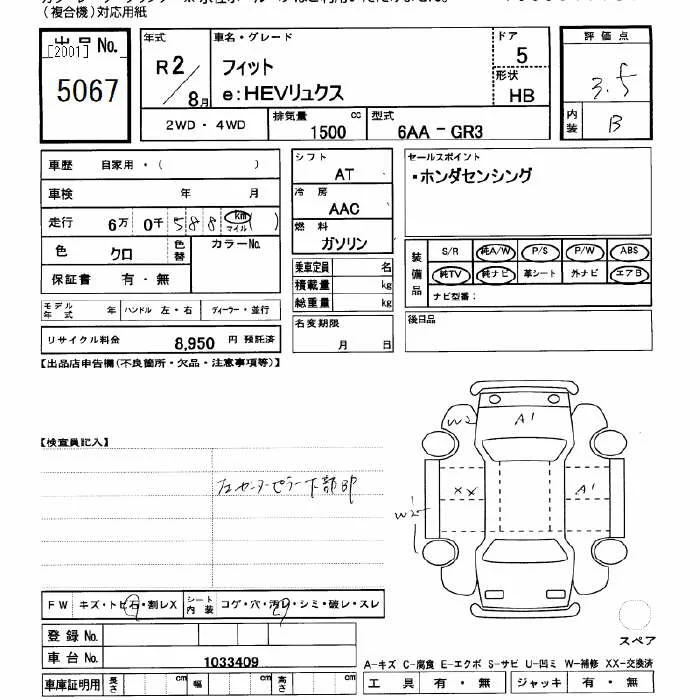 (複合機)対応用紙
出品No.
[2001]
5067
年式
R2/8月
車名・グレード
フィット
e:HEVリュクス
ドア
5
形状
HB
評価点
3.5
内装
B
2WD・4WD
排気量
1500 cc
型式
6AA-GR3
車歴 自家用・( )
車検 年 月
走行 6万 0千 588 km マイル ( )
色 クロ 色替 カラーNo.
保証書 有・無
シフト
AT
冷房
AAC
燃料
ガソリン
乗車定員 名
積載量 kg
総重量 kg
セールスポイント
・ホンダセンシング
装備品
S/R 純A/W P/S P/W ABS
純TV 純ナビ 革シート 外ナビ エアB
ナビ型番:
モデル年式 年 ハンドル 左・右 ディーラー・並行
リサイクル料金 8,950 円 預託済
名変期限
月 日
後日品
【出品店申告欄(不良箇所・欠品・注意事項等)】
【検査員記入】
左センターピラー下部BP
W2 A1
XX A1
W2
FW キズ・トビ石・割レX シート内装 コゲ・穴・汚レ・シミ・破レ・スレ
登録No.
車台No. 1033409
車庫証明用 長さ cm 幅 cm 高さ cm
スペア
A-キズ C-腐食 E-エクボ S-サビ U-凹ミ W-補修 XX-交換済
工具 有・無 ジャッキ 有・無